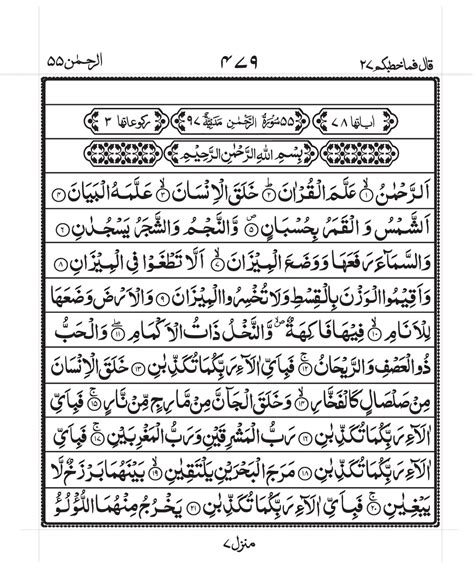 قال فما خطبكم ٢٧ ٤٧٩ الرحمٰن ٥٥
اٰیاتها ٧٨ ٥٥ سُوْرَةُ الرَّحْمٰنِ مَدَنِيَّةٌ ٩٧ رکوعاتها ٣
بِسْمِ اللّٰهِ الرَّحْمٰنِ الرَّحِيْمِ
اَلرَّحْمٰنُ ۙ﴿١﴾ عَلَّمَ الْقُرْاٰنَ ؕ﴿٢﴾ خَلَقَ الْاِنْسَانَ ۙ﴿٣﴾ عَلَّمَهُ الْبَيَانَ ﴿٤﴾
اَلشَّمْسُ وَ الْقَمَرُ بِحُسْبَانٍ ۪﴿٥﴾ وَّ النَّجْمُ وَ الشَّجَرُ يَسْجُدٰنِ ﴿٦﴾
وَ السَّمَآءَ رَفَعَهَا وَ وَضَعَ الْمِيْزَانَ ۙ﴿٧﴾ اَلَّا تَطْغَوْا فِي الْمِيْزَانِ ﴿٨﴾
وَ اَقِيْمُوا الْوَزْنَ بِالْقِسْطِ وَ لَا تُخْسِرُوا الْمِيْزَانَ ﴿٩﴾ وَ الْاَرْضَ وَضَعَهَا
لِلْاَنَامِ ۙ﴿١٠﴾ فِيْهَا فَاكِهَةٌ ۪ۙ وَّ النَّخْلُ ذَاتُ الْاَكْمَامِ ۖ﴿١١﴾ وَ الْحَبُّ
ذُو الْعَصْفِ وَ الرَّيْحَانُ ۚ﴿١٢﴾ فَبِاَيِّ اٰلَآءِ رَبِّكُمَا تُكَذِّبٰنِ ﴿١٣﴾ خَلَقَ الْاِنْسَانَ
مِنْ صَلْصَالٍ كَالْفَخَّارِ ۙ﴿١٤﴾ وَ خَلَقَ الْجَآنَّ مِنْ مَّارِجٍ مِّنْ نَّارٍ ۚ﴿١٥﴾ فَبِاَيِّ
اٰلَآءِ رَبِّكُمَا تُكَذِّبٰنِ ﴿١٦﴾ رَبُّ الْمَشْرِقَيْنِ وَ رَبُّ الْمَغْرِبَيْنِ ۚ﴿١٧﴾ فَبِاَيِّ
اٰلَآءِ رَبِّكُمَا تُكَذِّبٰنِ ﴿١٨﴾ مَرَجَ الْبَحْرَيْنِ يَلْتَقِيٰنِ ۙ﴿١٩﴾ بَيْنَهُمَا بَرْزَخٌ لَّا
يَبْغِيٰنِ ۚ﴿٢٠﴾ فَبِاَيِّ اٰلَآءِ رَبِّكُمَا تُكَذِّبٰنِ ﴿٢١﴾ يَخْرُجُ مِنْهُمَا اللُّؤْلُؤُ
منزل ٧